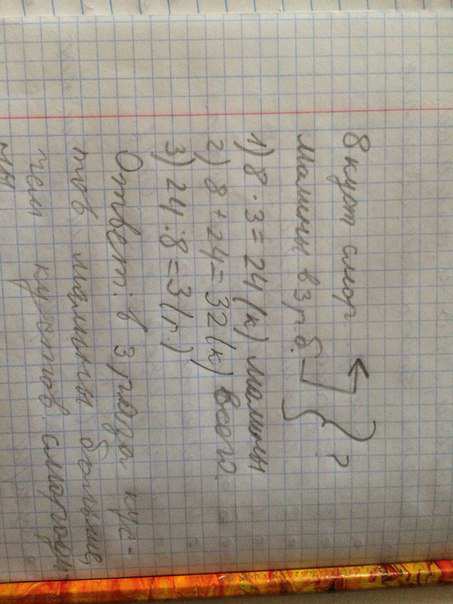 8 куст смор ?
Малины в 3 р б.
1) 8 · 3 = 24 (к) малины
2) 8 + 24 = 32 (к) всего.
3) 24 : 8 = 3 (р.)
Ответ: в 3 раза кус-
тов малины больше,
чем кустов смородин